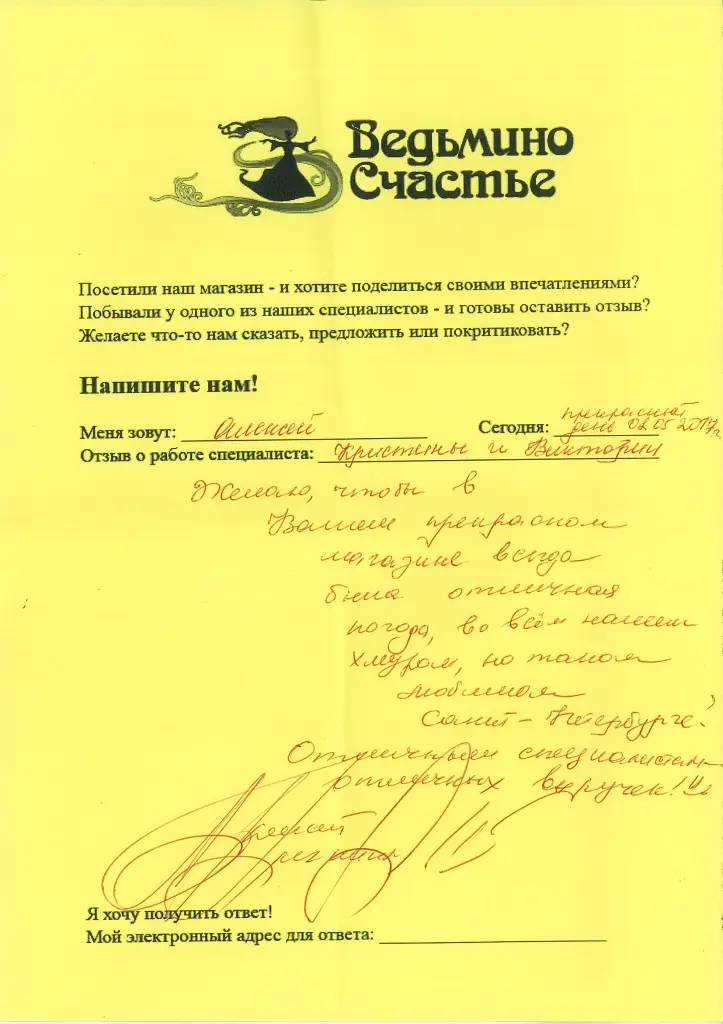 Ведьмино
Счастье
Посетили наш магазин - и хотите поделиться своими впечатлениями?
Побывали у одного из наших специалистов - и готовы оставить отзыв?
Желаете что-то нам сказать, предложить или покритиковать?
Напишите нам!
Меня зовут: Алексей Сегодня: прекрасный
день 02.05.2017г.
Отзыв о работе специалиста: Кристины и Виктории
Желаю, чтобы в
Вашем прекрасном
магазине всегда
была отличная
погода, во всём нашем
хмуром, но таком
любимом
Санкт-Петербурге!
Отличным специалистам
отличных выручек!!!
Я хочу получить ответ!
Мой электронный адрес для ответа: